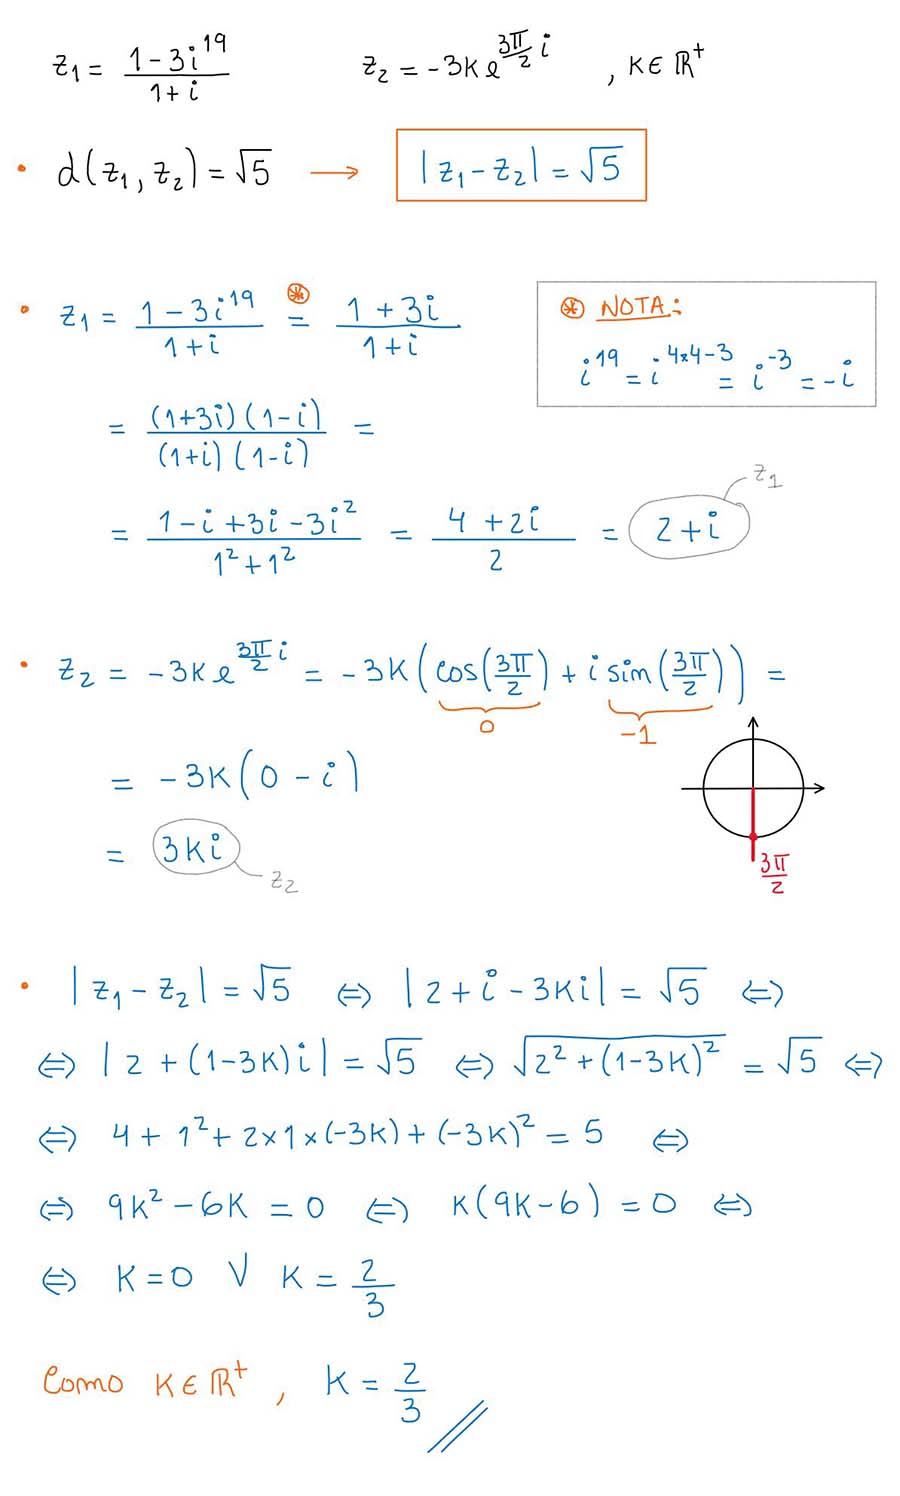 z₁ = (1 - 3i¹⁹)/(1 + i)    z₂ = -3K e^(3π/2 i) , K ∈ ℝ⁺
• d(z₁, z₂) = √5 → |z₁ - z₂| = √5
• z₁ = (1 - 3i¹⁹)/(1 + i) =^⊛ (1 + 3i)/(1 + i)
⊛ NOTA:
i¹⁹ = i^(4×4-3) = i⁻³ = -i
= ((1+3i)(1-i))/((1+i)(1-i)) =
= (1 - i + 3i - 3i²)/(1² + 1²) = (4 + 2i)/2 = 2 + i
z₁
• z₂ = -3K e^(3π/2 i) = -3K(cos(3π/2) + i sin(3π/2)) =
0    -1
= -3K(0 - i)
= 3Ki
z₂
3π/2
• |z₁ - z₂| = √5 ⇔ |2 + i - 3Ki| = √5 ⇔
⇔ |2 + (1-3K)i| = √5 ⇔ √(2² + (1-3K)²) = √5 ⇔
⇔ 4 + 1² + 2×1×(-3K) + (-3K)² = 5 ⇔
⇔ 9K² - 6K = 0 ⇔ K(9K - 6) = 0 ⇔
⇔ K = 0 ∨ K = 2/3
Como K ∈ ℝ⁺, K = 2/3